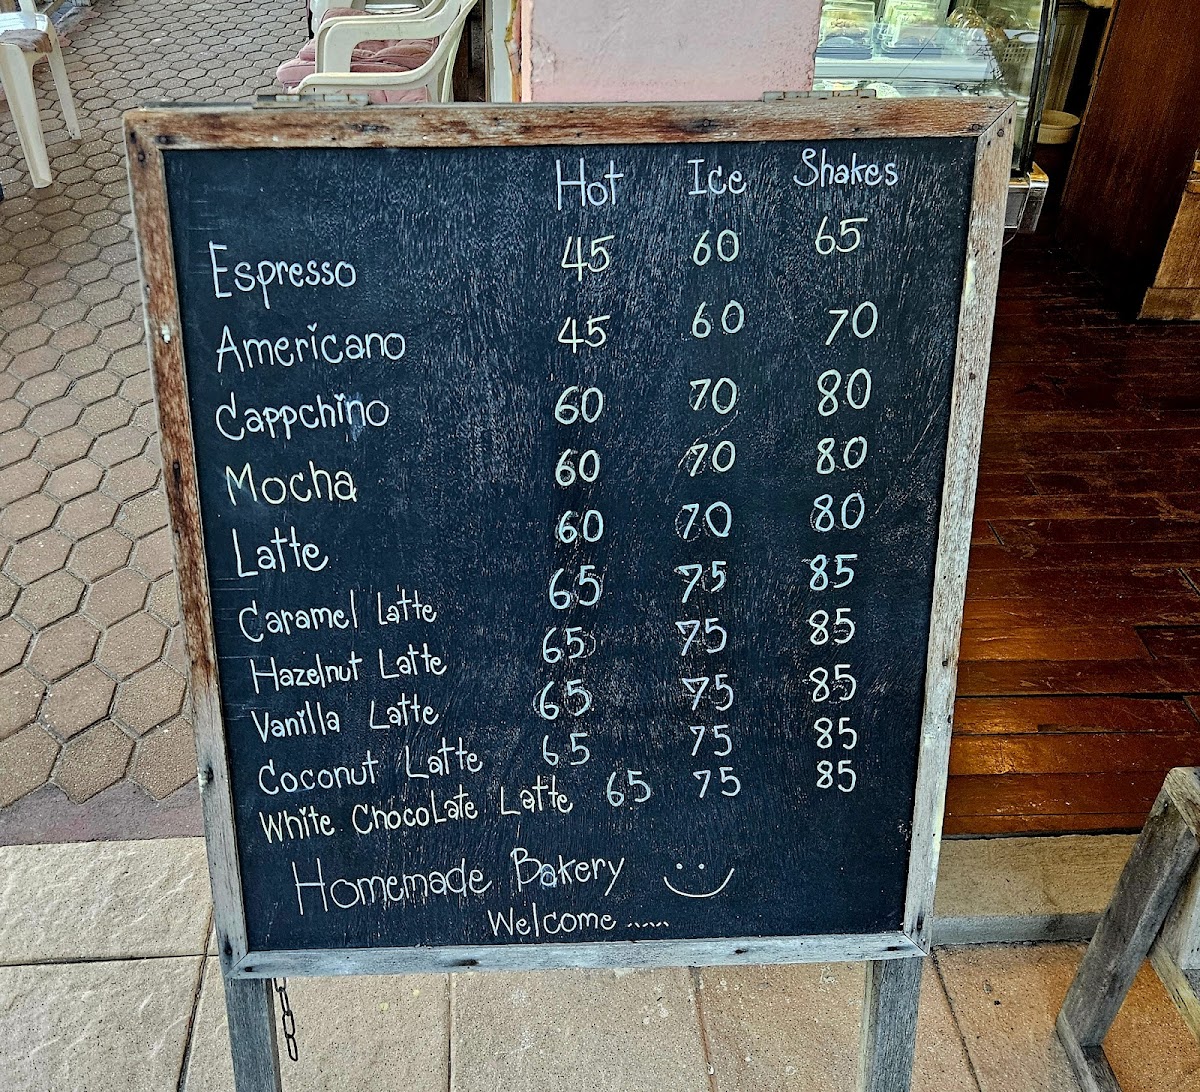 Hot Ice Shakes
Espresso 45 60 65
Americano 45 60 70
Cappchino 60 70 80
Mocha 60 70 80
Latte 60 70 80
Caramel Latte 65 75 85
Hazelnut Latte 65 75 85
Vanilla Latte 65 75 85
Coconut Latte 65 75 85
White Chocolate Latte 65 75 85
Homemade Bakery
Welcome .....